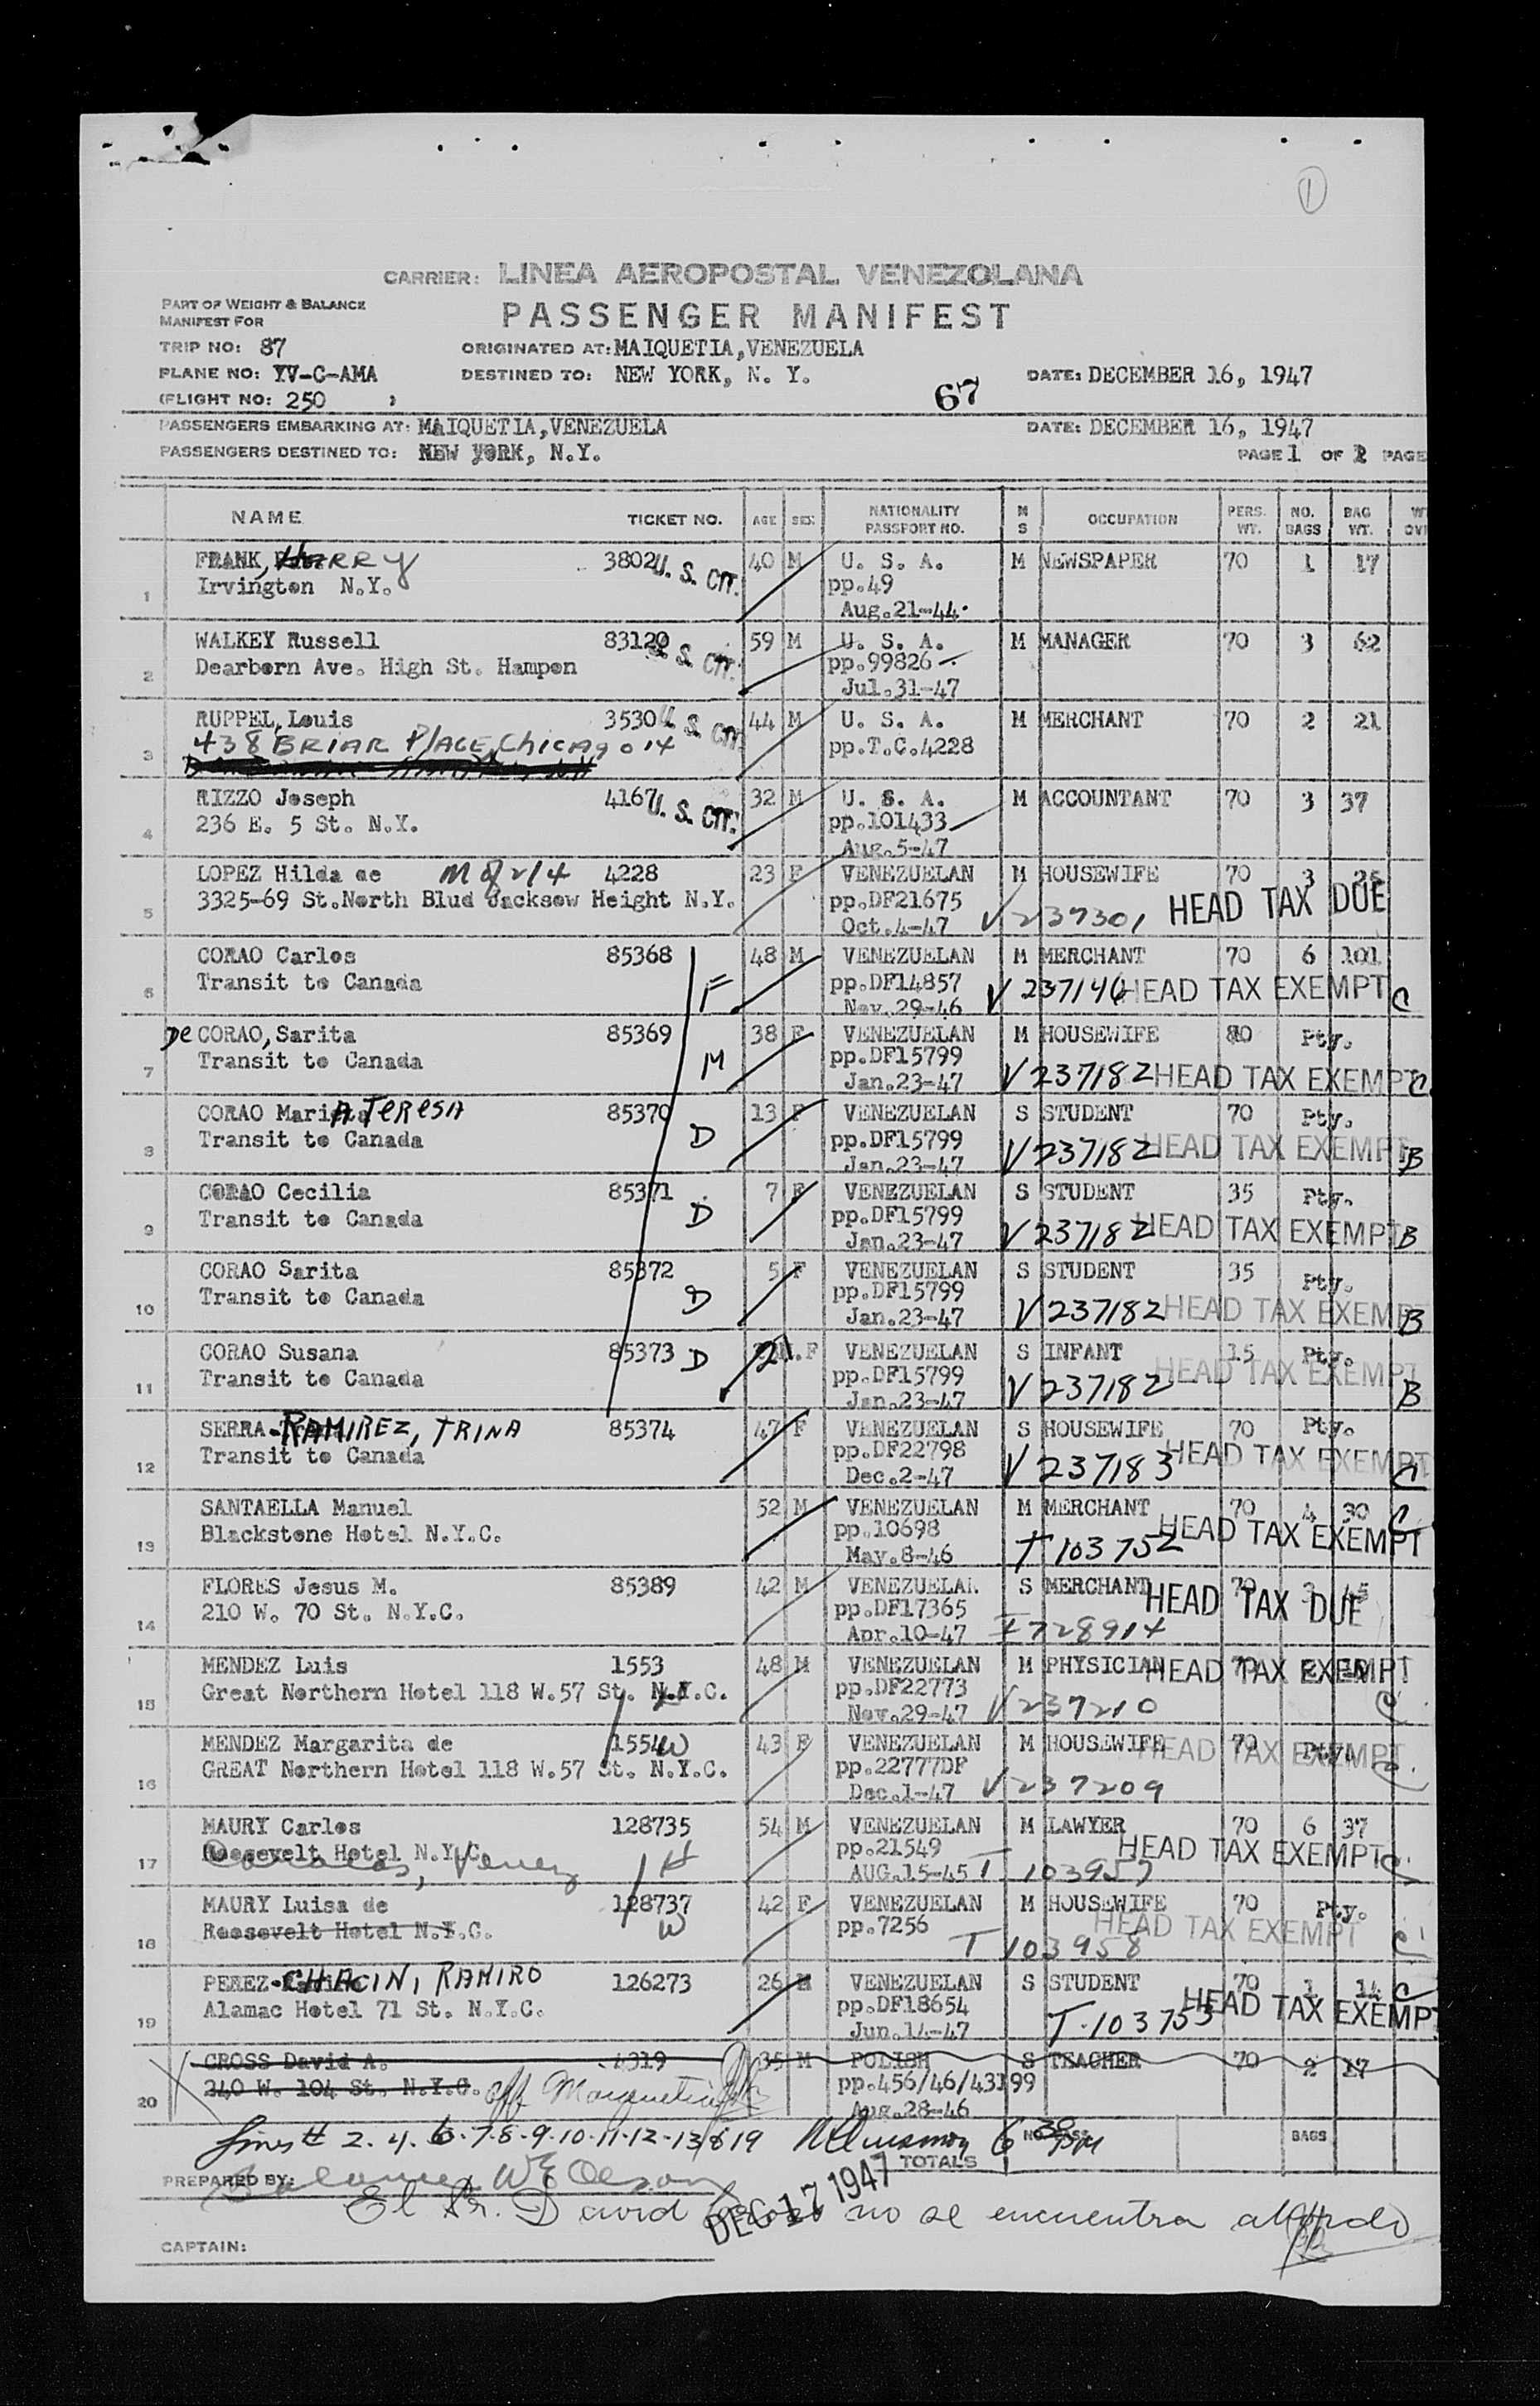 1
CARRIER: LINEA AEROPOSTAL VENEZOLANA
PART OF WEIGHT & BALANCE
MANIFEST FOR
PASSENGER MANIFEST
TRIP NO: 87 ORIGINATED AT: MAIQUETIA, VENEZUELA
PLANE NO: YV-C-AMA DESTINED TO: NEW YORK, N. Y. DATE: DECEMBER 16, 1947
(FLIGHT NO: 250 ) 67
PASSENGERS EMBARKING AT: MAIQUETIA, VENEZUELA DATE: DECEMBER 16, 1947
PASSENGERS DESTINED TO: NEW YORK, N.Y. PAGE 1 OF 2 PAGE
NAME TICKET NO. AGE SEX NATIONALITY PASSPORT NO. M S OCCUPATION PERS. WT. NO. BAGS BAG WT.
FRANK, HARRY 3802 U. S. CIT. 40 M U. S. A. M NEWSPAPER 70 1 17
Irvington N.Y. pp.49
1 Aug.21-44.
WALKEY Russell 83120 U. S. CIT. 59 M U. S. A. M MANAGER 70 3 62
Dearborn Ave. High St. Hampon pp.99826
2 Jul.31-47
RUPPEL, Louis 3530 U. S. CIT. 44 M U. S. A. M MERCHANT 70 2 21
438 BRIAR PLACE, Chicago 14 pp.T.C.4228
3
RIZZO Joseph 4167 U. S. CIT. 32 M U. S. A. M ACCOUNTANT 70 3 37
236 E. 5 St. N.Y. pp.101433
4 Aug.5-47
LOPEZ Hilda de 4228 23 F VENEZUELAN M HOUSEWIFE 70 3
3325-69 St.North Blud Jacksow Height N.Y. pp.DF21675 HEAD TAX DUE
5 Oct.4-47 V 237301
CORAO Carlos 85368 48 M VENEZUELAN M MERCHANT 70 6 101
Transit to Canada F pp.DF14857 V 237146 HEAD TAX EXEMPT C
6 Nov.29-46
De CORAO, Sarita 85369 38 F VENEZUELAN M HOUSEWIFE 80 Pty.
Transit to Canada M pp.DF15799
7 Jan.23-47 V 237182 HEAD TAX EXEMPT C
CORAO Maria TERESA 85370 13 F VENEZUELAN S STUDENT 70 Pty.
Transit to Canada D pp.DF15799
8 Jan.23-47 V 237182 HEAD TAX EXEMPT B
CORAO Cecilia 85371 7 F VENEZUELAN S STUDENT 35 Pty.
Transit to Canada D pp.DF15799
9 Jan.23-47 V 237182 HEAD TAX EXEMPT B
CORAO Sarita 85372 5 F VENEZUELAN S STUDENT 35 Pty.
Transit to Canada D pp.DF15799
10 Jan.23-47 V 237182 HEAD TAX EXEMPT B
CORAO Susana 85373 D 2 F VENEZUELAN S INFANT 15 Pty.
Transit to Canada pp.DF15799 HEAD TAX EXEMPT
11 Jan.23-47 V 237182 B
SERRA-RAMIREZ, TRINA 85374 47 F VENEZUELAN S HOUSEWIFE 70 Pty.
Transit to Canada pp.DF22798 HEAD TAX EXEMPT
12 Dec.2-47 V 237183 C
SANTAELLA Manuel 52 M VENEZUELAN M MERCHANT 70 4 30 C
Blackstone Hotel N.Y.C. pp.10698 HEAD TAX EXEMPT
13 May.8-46 T 103752
FLORES Jesus M. 85389 42 M VENEZUELAN S MERCHANT 70
210 W. 70 St. N.Y.C. pp.DF17365 HEAD TAX DUE
14 Apr.10-47
MENDEZ Luis 1553 48 M VENEZUELAN M PHYSICIAN 70 HEAD TAX EXEMPT
Great Northern Hotel 118 W.57 St. N.Y.C. pp.DF22773
15 Nov.29-47 V 237210 C
MENDEZ Margarita de 1554 W 43 F VENEZUELAN M HOUSEWIFE 70 Pty. HEAD TAX EXEMPT
GREAT Northern Hotel 118 W.57 St. N.Y.C. pp.22777DF
16 Dec.1-47 V 237209 C
MAURY Carlos 128735 54 M VENEZUELAN M LAWYER 70 6 37
Roosevelt Hotel N.Y.C. H pp.21549 HEAD TAX EXEMPT C
17 Caracas, Venez AUG.15-45 T 103957
MAURY Luisa de 128737 42 F VENEZUELAN M HOUSEWIFE 70 Pty.
Roosevelt Hotel N.Y.C. W pp.7256 HEAD TAX EXEMPT
18 T 103958 C
PEREZ-CHACIN, RAMIRO 126273 26 M VENEZUELAN S STUDENT 70 1 14 C
Alamac Hotel 71 St. N.Y.C. pp.DF18654 HEAD TAX EXEMPT
19 Jun.14-47 T-103753
CROSS David A. 4319 35 M POLISH S TEACHER 70 2 17
240 W. 104 St. N.Y.C. off Maiquetia pp.456/46/43199
20 Aug.28-46
Lines # 2.4.6.7.8.9.10.11.12.13 & 19 6 30 PM BAGS
TOTALS
PREPARED BY:
DEC 17 1947
El Sr. David no se encuentra abordo
CAPTAIN: